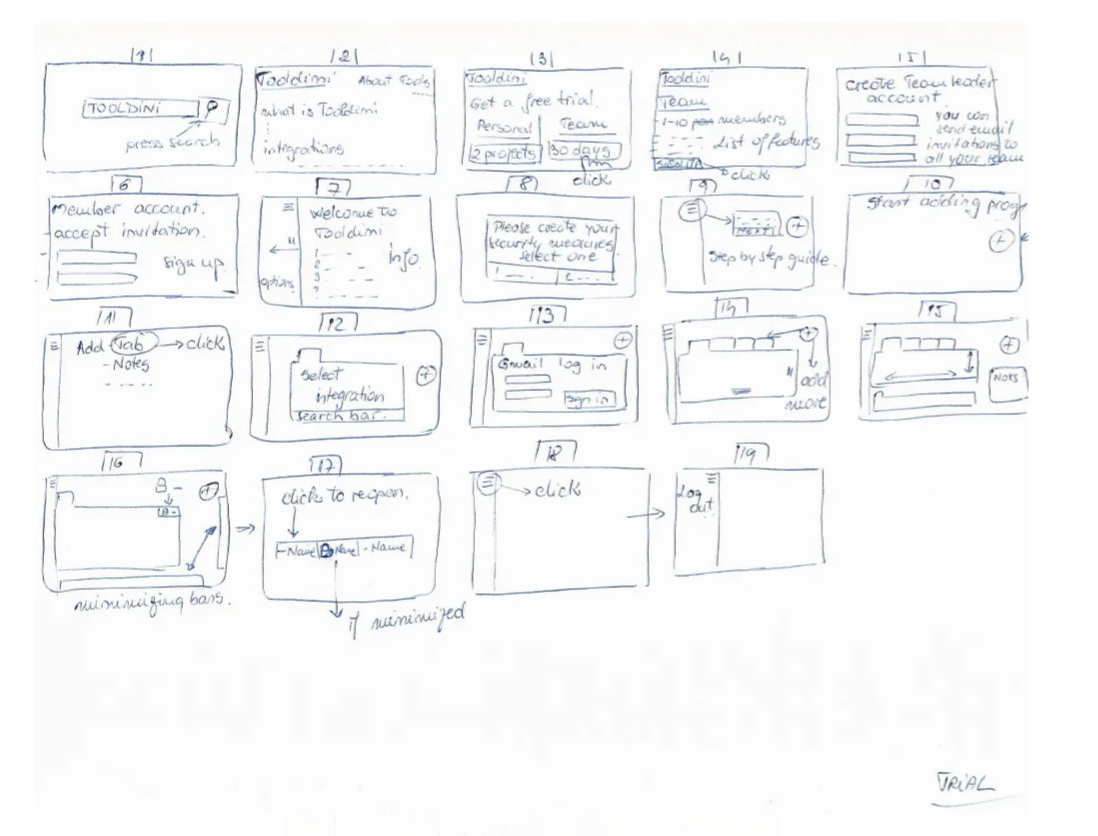 1
TOOLDINI
press search
2
Tooldimi About Tools
what is Tooldimi
integrations
3
Tooldini
Get a free trial.
Personal Team
2 projects 30 days
click
4
Tooldini
Team
1-10 members
List of features
SIGN UP
click
5
create Team leader
account
you can
send email
invitations to
all your team
6
Member account.
accept invitation.
sign up
7
Welcome to
Tooldimi
1
2
3
info.
options
8
Please create your
security measures
select one
1 2
9
NEXT
Step by step guide.
10
Start adding prog
11
Add Tab click
- Notes
12
Select
integration
search bar.
13
Gmail log in
Sign in
14
add
more
15
Notes
16
minimizing bars.
17
click to reopen.
- Name Name - Name
if minimized
18
click
19
Log
out
TRIAL